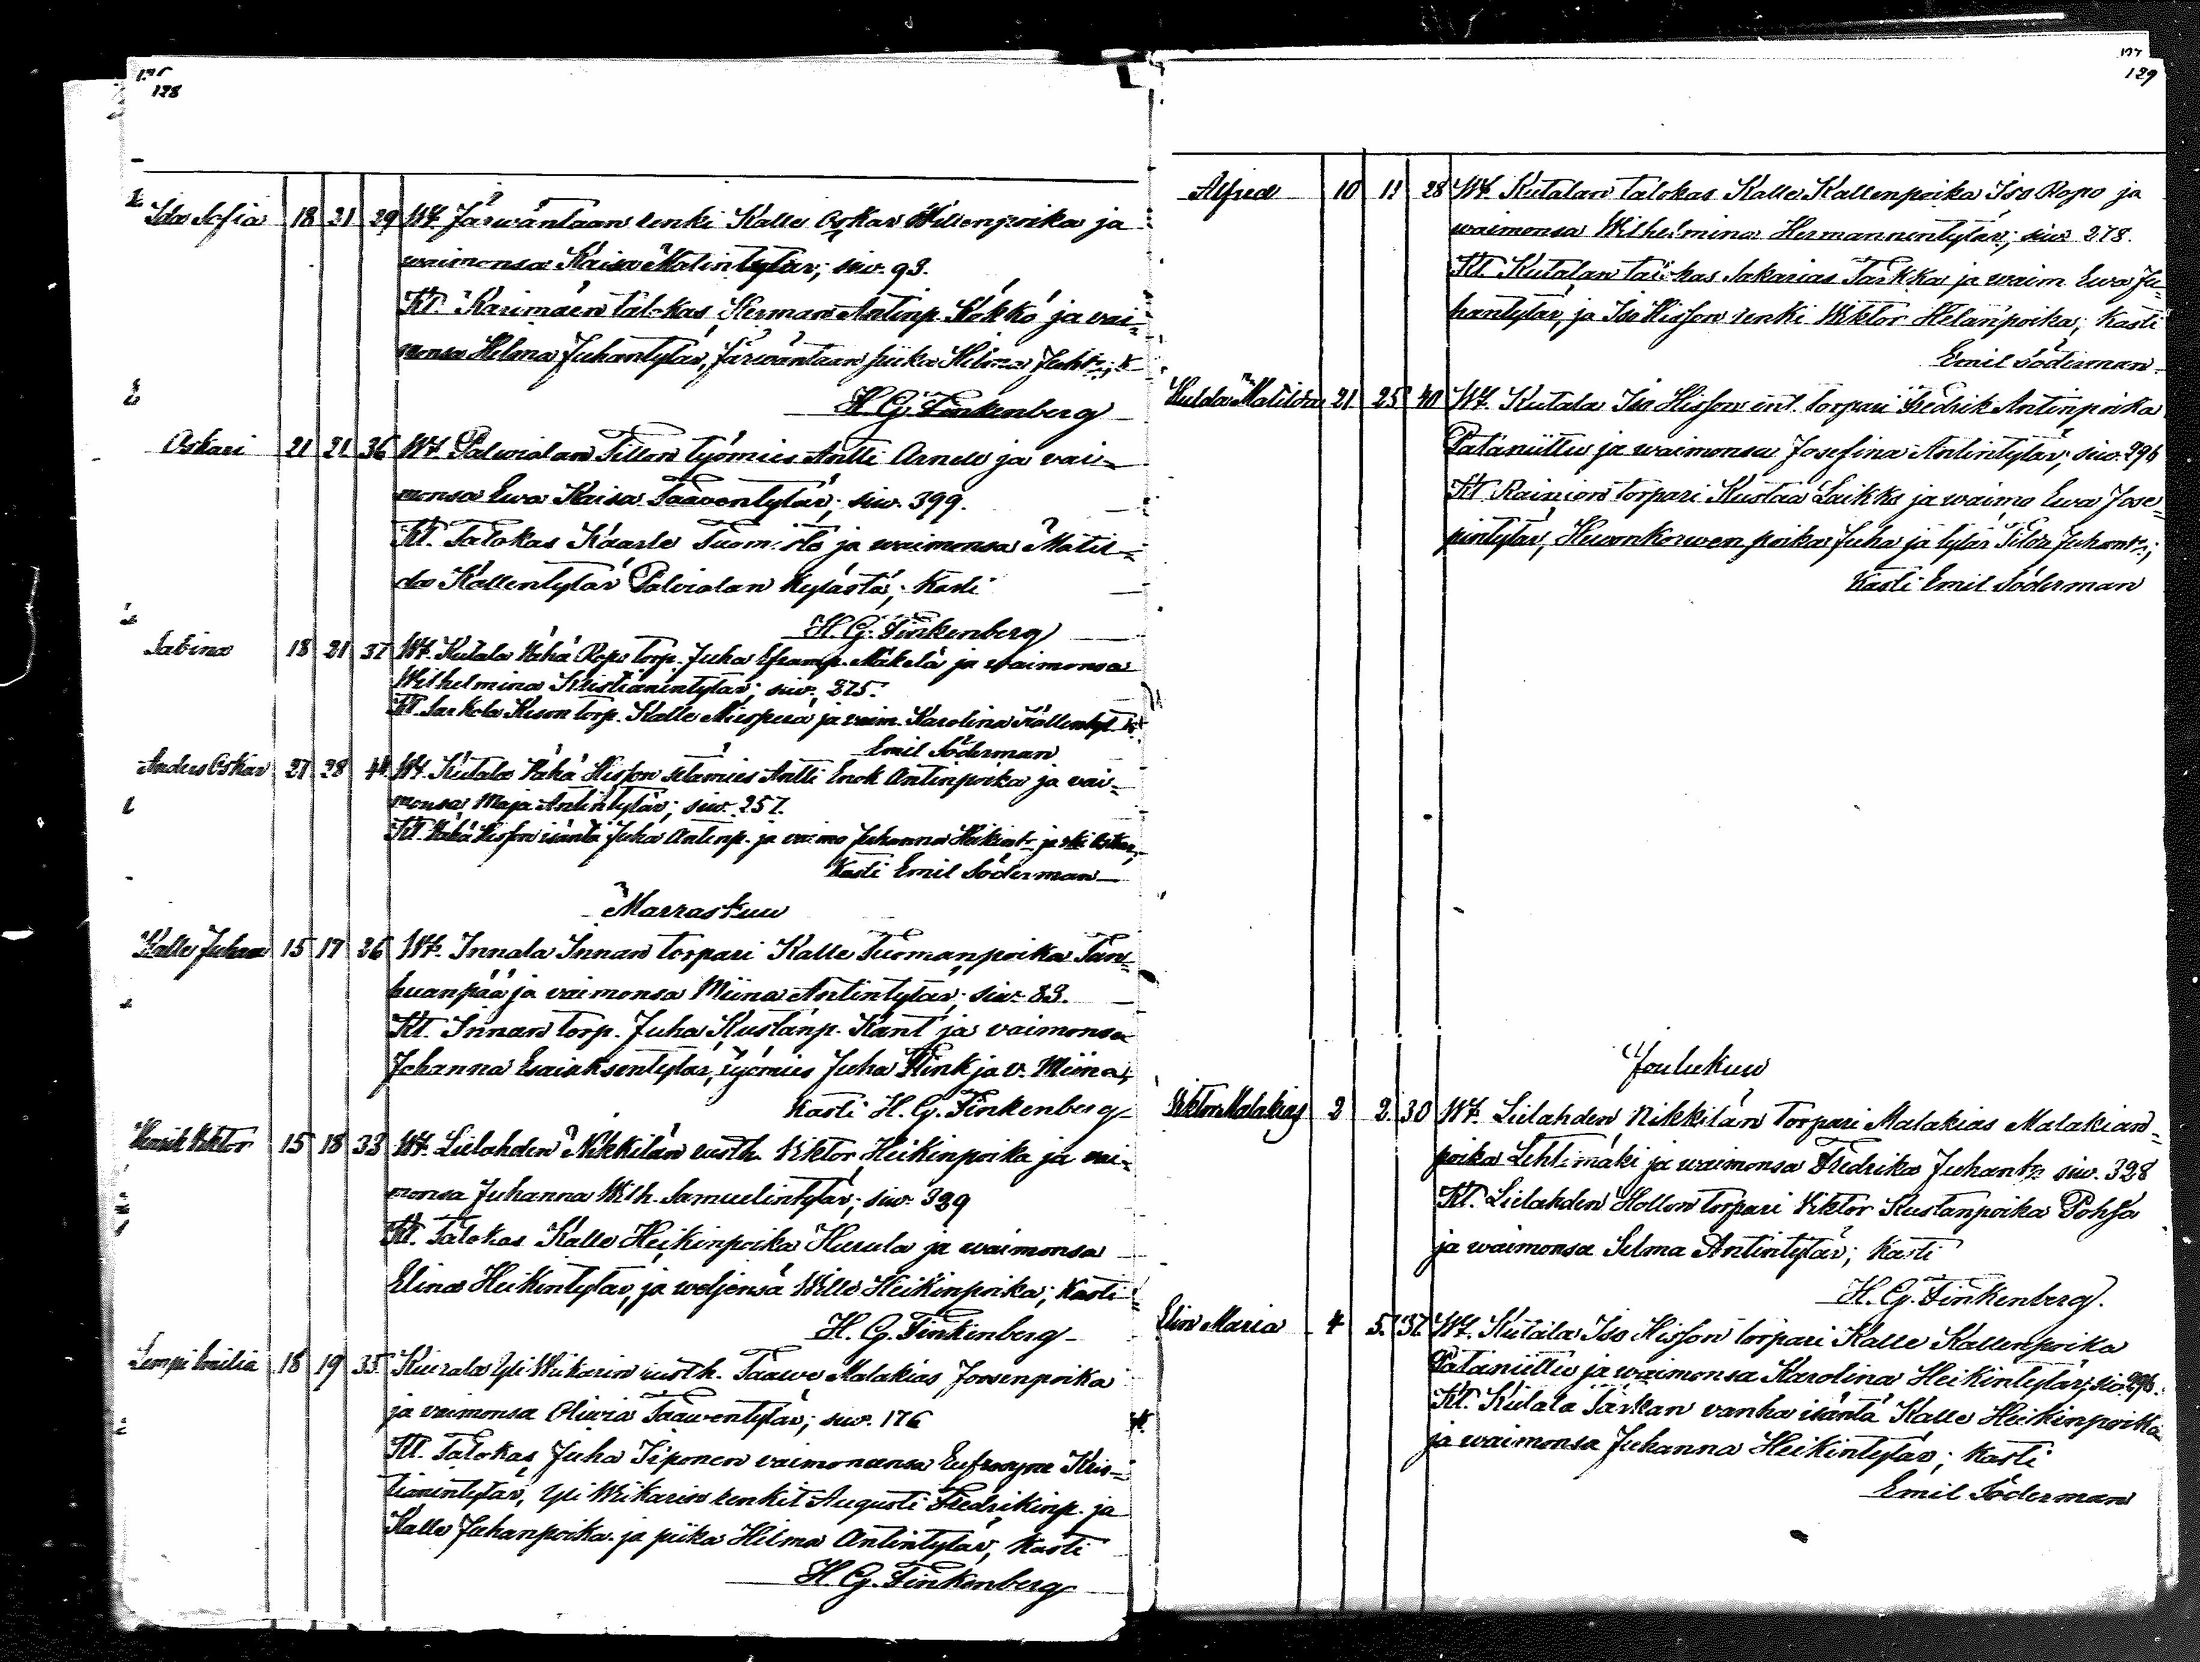 128
Ida Sofia 18 21 29 Wt. Järwäntaan renki Kalle Oskar Willenpoika ja
waimonsa Kaisa Matintytär; siw. 93.
Kt. Karimäen talokas Herman Antinp. Kökkö ja vai-
monsa Helma Juhantytär, Järwäntaan piika Hilma Juht.; k.
H. G. Finkenberg
Oskari 21 21 36 Wt. Palvialan Tillon työmies Antti Arnell ja vai-
monsa Ewa Kaisa Taaventytär; siw. 399.
Kt. Talokas Kaarle Tuomisto ja waimonsa Matil-
da Kallentytär Palvialan kylästä; kasti
H. G. Finkenberg
Sabina 18 21 37 Wt. Kutala Vähä Ropo torp. Juha Eframp. Mäkelä ja waimonsa
Wilhelmina Kristianintytär; siw. 275.
Kt. Sarkola torp. Kalle ja vaim. Karolina Kallentyt. k.
Emil Söderman
Anders Oskar 27 28 Wt. Kutala Vähä Hisson itämies Antti Enok Antinpoika ja vai-
monsa Maja Antintytär; siw. 257.
Kt. Vähä Hisson isäntä Juha Antinp. ja vaimo Juhanna Heikint. ja Oskar,
Kasti Emil Söderman
Marraskuu
Kalle Juhan 15 17 26 Wt. Innala Innan torpari Kalle Tuomanpoika Tan-
huanpää ja vaimonsa Miina Antintytär; siw. 83.
Kt. Innan torp. Juha Kustanp. Kant ja vaimonsa
Johanna Esaiaksentytär, työmies Juha Flink ja v. Miina;
Kasti H. G. Finkenberg
Henrik Viktor 15 18 33 Wt. Lielahden Nikkilän rusth. Viktor Heikinpoika ja vai-
monsa Juhanna Wilh. Samuelintytär; siw. 329
Kt. Talokas Kalle Heikinpoika Hurula ja waimonsa
Elina Heikintytär, ja weljensä Wille Heikinpoika; Kasti
H. G. Finkenberg
Lempi Emilia 18 19 35 Kiurala Yli Wikarin rusth. Taawe Malakias Joosenpoika
ja vaimonsa Olivia Taawentytär; siw. 176
Kt. Talokas Juha Siponen vaimonensa Eufrosyne Kris-
tianintytär, Yli Wikarin renkit Augusti Fredrikinp. ja
Kalle Juhanpoika ja piika Hilma Antintytär, Kasti
H. G. Finkenberg
129
Alfred 10 11 28 Wt. Kutalan talokas Kalle Kallenpoika Iso Ropo ja
waimonsa Wilhelmina Hermannentytär; siw. 278.
Kt. Kutalan talokas Sakarias Tarkka ja waim. Ewa Ju-
hantytär, ja Iso Hisson renki Wiktor Helanpoika; Kasti
Emil Söderman
Hulda Matilda 21 25 40 Wt. Kutala Iso Hisson ent. torpari Fredrik Antinpoika
Pataniittu ja waimonsa Josefina Antintytär; siw. 296
Kt. Rainion torpari Kustaa Laikko ja waimo Ewa Jose-
pintytär, Hewonkorwen poika Juha ja tytär Tilda Juhant.;
Kasti Emil Söderman
Joulukuu
Viktor Malakias 2 2 30 Wt. Lielahden Nikkilän torpari Malakias Malakian-
poika Lehtimäki ja waimonsa Fredrika Juhant. siw. 328
Kt. Lielahden Hollon torpari Viktor Kustanpoika Pohja
ja waimonsa Selma Antintytär; Kasti
H. G. Finkenberg.
Elin Maria 4 5 37 Wt. Kutala Iso Hisson torpari Kalle Kallenpoika
Pataniittu ja waimonsa Karolina Heikintytär; siw. 296.
Kt. Kutala Tarkan vanha isäntä Kalle Heikinpoika
ja waimonsa Juhanna Heikintytär; Kasti
Emil Söderman